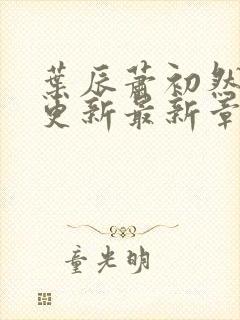 葉辰蕭初然
更新最新章
童光明